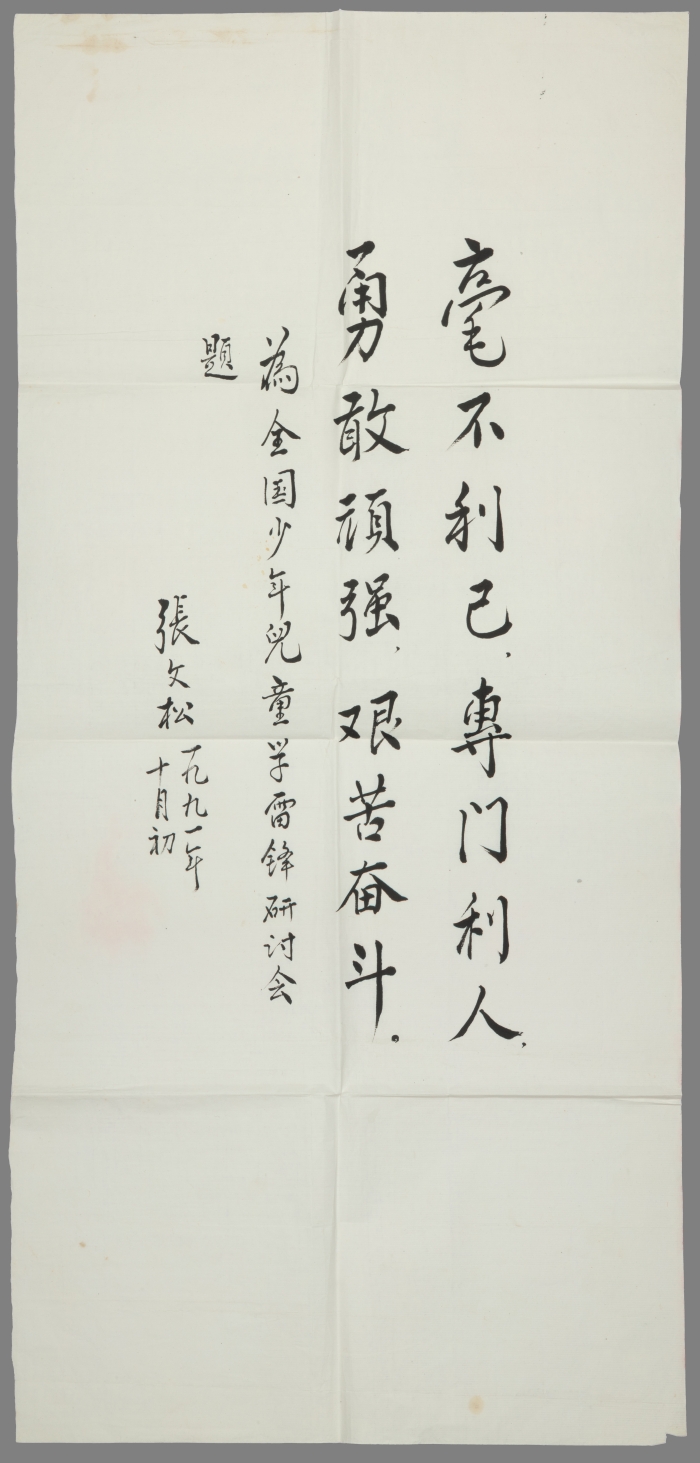 毫不利己，專门利人，
勇敢顽强，艰苦奋斗。
為全国少年兒童学雷锋研讨会
題
張文松
一九九一年
十月初